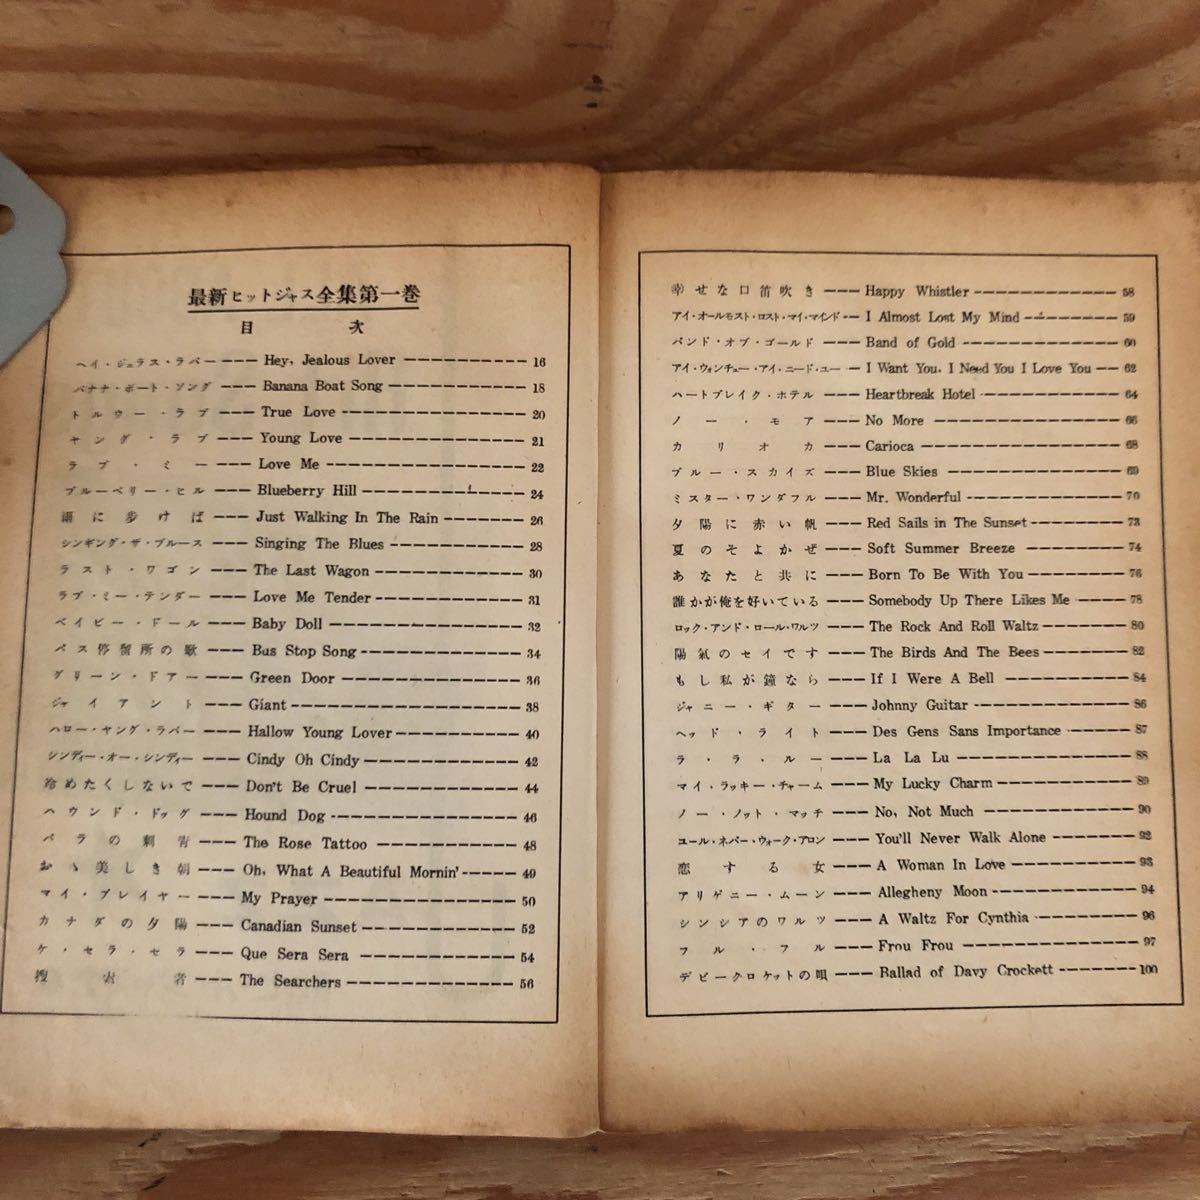 最新ヒットジャズ全集第一巻
目次
ヘイ・ジェラス・ラバー --- Hey, Jealous Lover --- 16
バナナ・ボート・ソング --- Banana Boat Song --- 18
トルウー・ラブ --- True Love --- 20
ヤング・ラブ --- Young Love --- 21
ラブ・ミー --- Love Me --- 22
ブルーベリー・ヒル --- Blueberry Hill --- 24
雨に歩けば --- Just Walking In The Rain --- 26
シンギング・ザ・ブルース --- Singing The Blues --- 28
ラスト・ワゴン --- The Last Wagon --- 30
ラブ・ミー・テンダー --- Love Me Tender --- 31
ベイビー・ドール --- Baby Doll --- 32
バス停留所の歌 --- Bus Stop Song --- 34
グリーン・ドアー --- Green Door --- 36
ジャイアント --- Giant --- 38
ハロー・ヤング・ラバー --- Hallow Young Lover --- 40
シンディー・オー・シンディー --- Cindy Oh Cindy --- 42
冷めたくしないで --- Don't Be Cruel --- 44
ハウンド・ドッグ --- Hound Dog --- 46
バラの刺青 --- The Rose Tattoo --- 48
おゝ美しき朝 --- Oh, What A Beautiful Mornin' --- 49
マイ・プレイヤー --- My Prayer --- 50
カナダの夕陽 --- Canadian Sunset --- 52
ケ・セラ・セラ --- Que Sera Sera --- 54
捜索者 --- The Searchers --- 56
幸せな口笛吹き --- Happy Whistler --- 58
アイ・オールモスト・ロスト・マイ・マインド --- I Almost Lost My Mind --- 59
バンド・オブ・ゴールド --- Band of Gold --- 60
アイ・ウォンチュー・アイ・ニード・ユー --- I Want You, I Need You I Love You --- 62
ハートブレイク・ホテル --- Heartbreak Hotel --- 64
ノー・モア --- No More --- 66
カリオカ --- Carioca --- 68
ブルー・スカイズ --- Blue Skies --- 69
ミスター・ワンダフル --- Mr. Wonderful --- 70
夕陽に赤い帆 --- Red Sails in The Sunset --- 73
夏のそよかぜ --- Soft Summer Breeze --- 74
あなたと共に --- Born To Be With You --- 76
誰かが俺を好いている --- Somebody Up There Likes Me --- 78
ロック・アンド・ロール・ワルツ --- The Rock And Roll Waltz --- 80
陽気のセイです --- The Birds And The Bees --- 82
もし私が鐘なら --- If I Were A Bell --- 84
ジャニー・ギター --- Johnny Guitar --- 86
ヘッド・ライト --- Des Gens Sans Importance --- 87
ラ・ラ・ルー --- La La Lu --- 88
マイ・ラッキー・チャーム --- My Lucky Charm --- 89
ノー・ノット・マッチ --- No, Not Much --- 90
ユール・ネバー・ウォーク・アロン --- You'll Never Walk Alone --- 92
恋する女 --- A Woman In Love --- 93
アリゲニー・ムーン --- Allegheny Moon --- 94
シンシアのワルツ --- A Waltz For Cynthia --- 96
フル・フル --- Frou Frou --- 97
デビークロケットの唄 --- Ballad of Davy Crockett --- 100